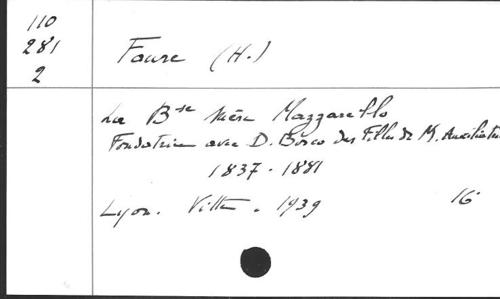 110
281
2
Faure (H.)
La Bse Mère Mazzarello
Fondatrice avec D. Bosco des Filles de M. Auxiliatri
1837-1881
Lyon. Vitte. 1939 16